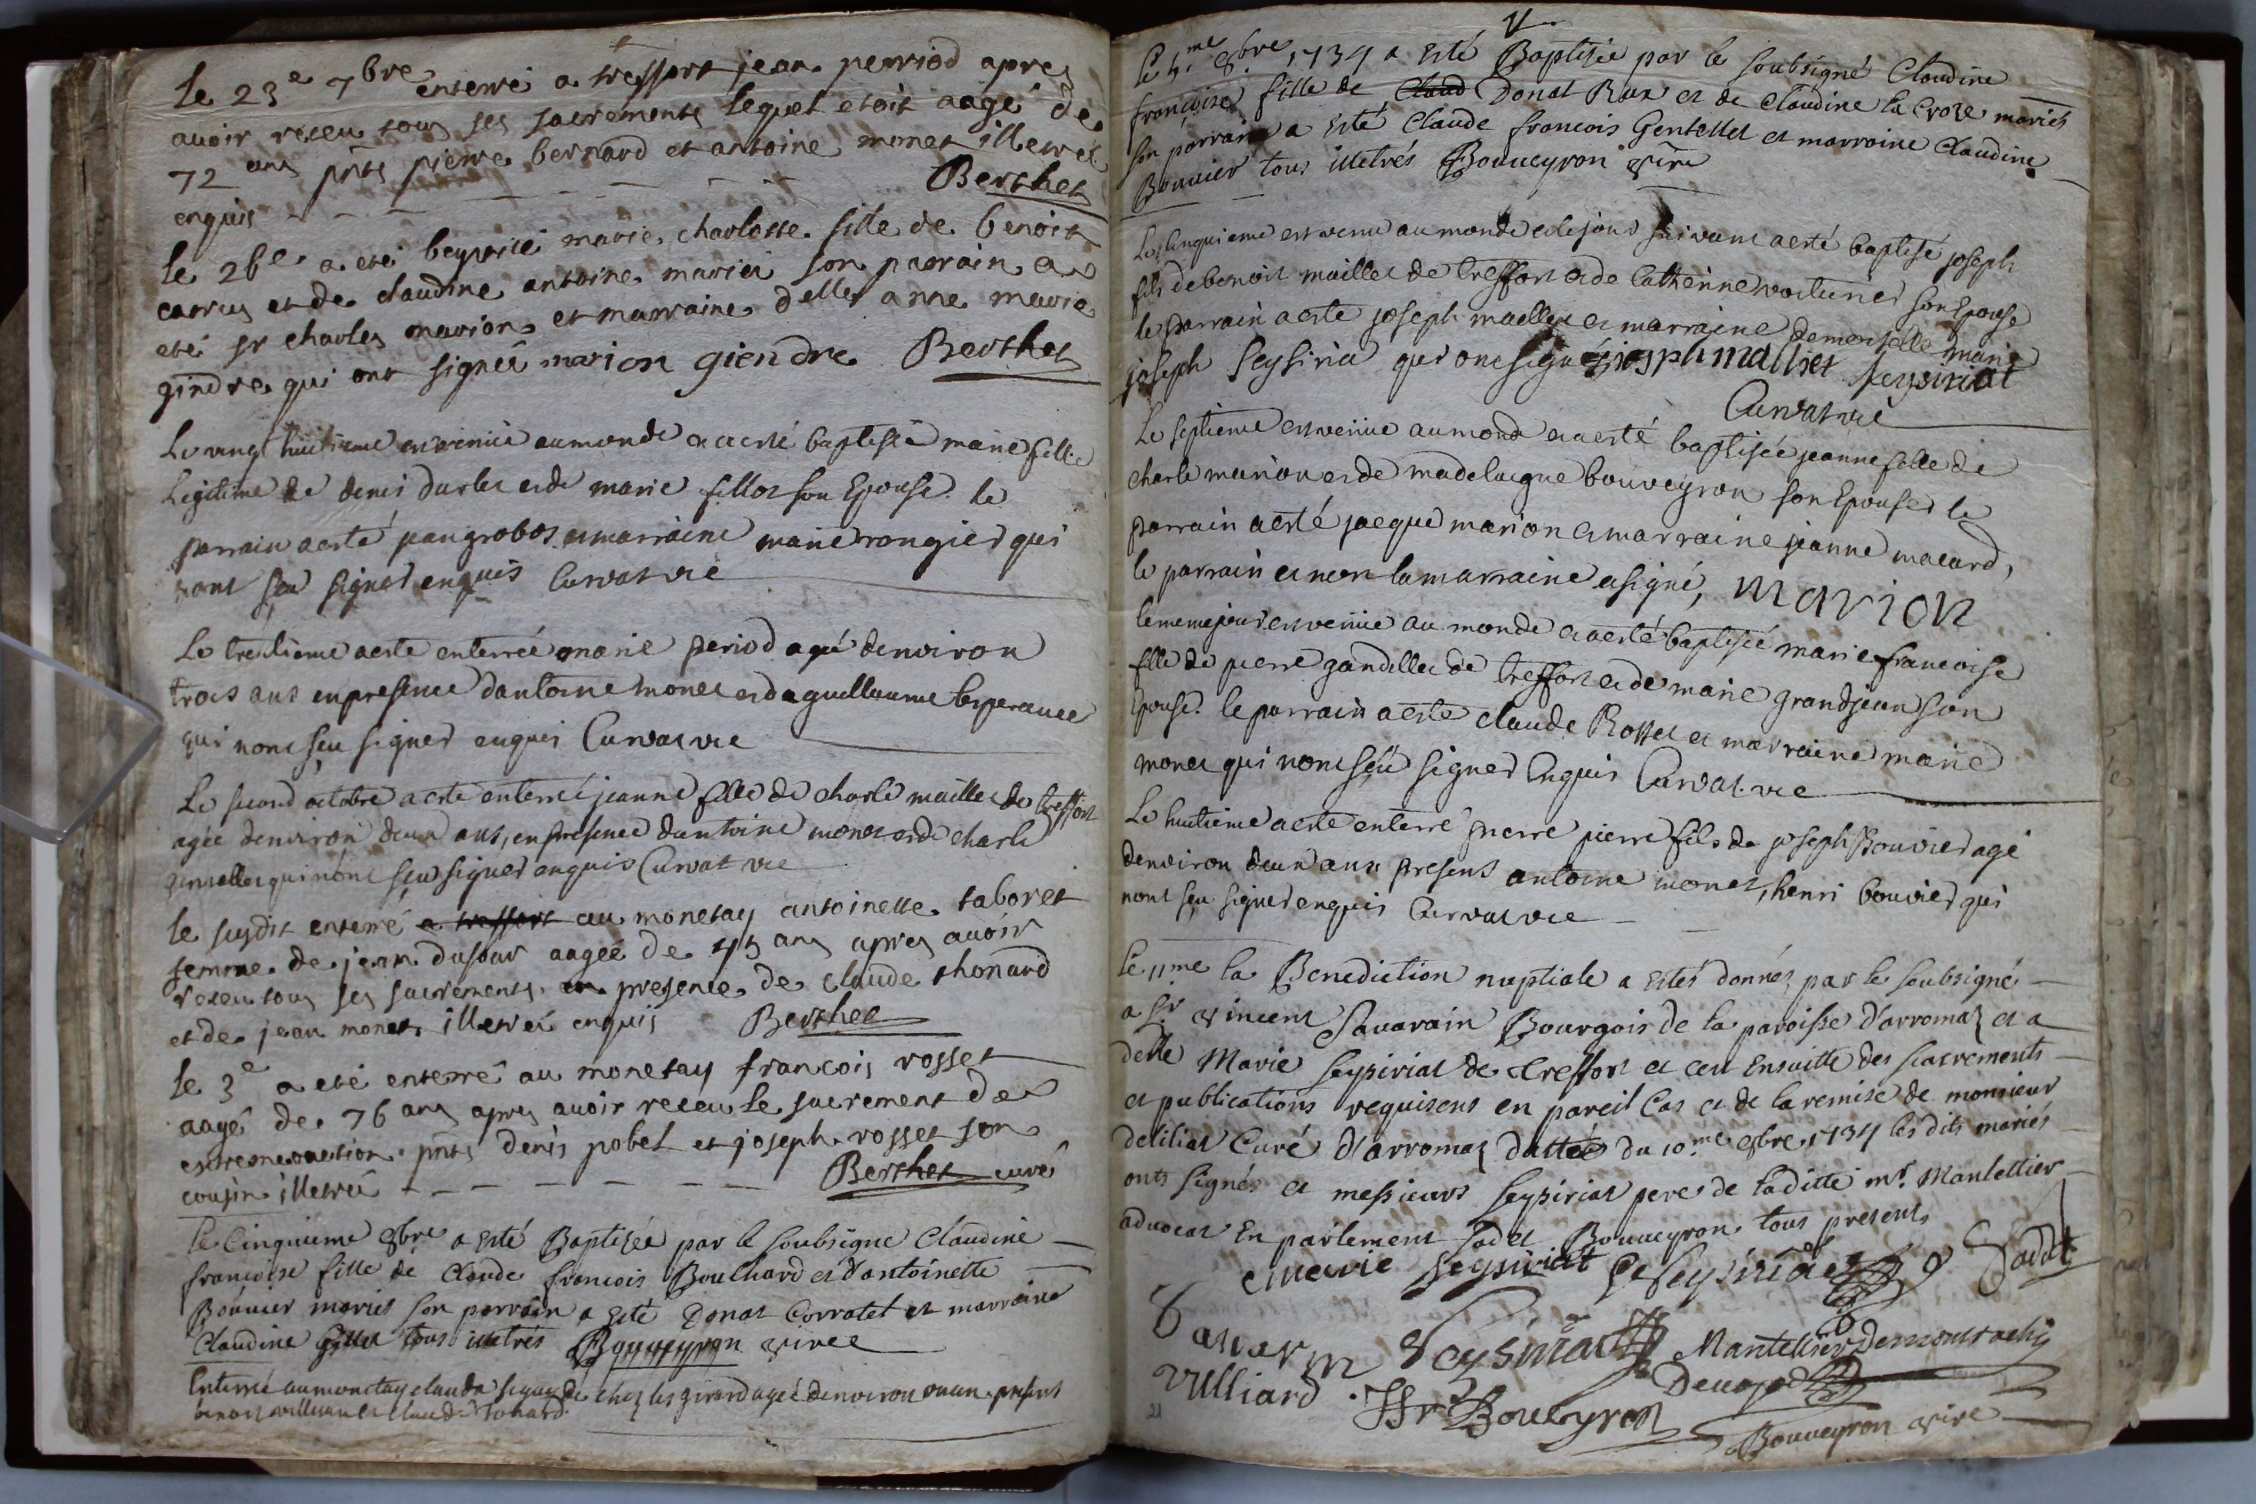 Le 23e 7bre enterré a treffort jean perriod apres
avoir receu tous ses sacrements lequel etoit aagé de
72 ans pnts pierre bernard et antoine monet illetrés
enquis Berthet
le 26e a eté beptisé marie charlotte fille de benoit
carrus et de claudine antoine mariés son parrain a
eté sr charles marion et marraine delle anne marie
gindre qui ont signéé marion giendre Berthet
Le vingt huitieme est venüe au monde et a esté baptisée marie fille
Legitime de denis et de marie fillot son Epouse. le
parrain a esté et marraine marie rongier qui
nont sçu signer enquis Curvat vic
Le trentieme a esté enterrée marie period agé denviron
trois ans en presence dantoine monet et de guillaume lesperance
qui nont sçu signer enquis Curvat vic
Le second octobre a esté enterré jeanne fille de charle maillet de treffort
agée denviron deux ans, en presence dantoine monet et de charle
gentellet qui nont sçu signer enquis Curvat vic
le susdit enterré a treffort au monetay antoinette taboret
femme de jean dufour aagée de 45 ans apres avoir
receu tous ses sacrements en presence de claude thonard
et de jean monet illetréi enquis Berthet
le 3e a eté enterré au monetay françois rosset
aagé de 76 ans apres avoir receu le sacrement de
extremeonction pnts denis pobel et joseph rosset son
cousin illetréi Berthet curé
le Cinquieme 8bre a esté Baptisée par le soubsigné Claudine
françoise fille de Claude francois Bouchard et d'antoinette
Bouvier mariés son parrain a esté Donat Corratel et marraine
Claudine Gillet tous illetrés Bouveyron vicre
Enterré au monetay claude de chez les girard agé denviron un an presents
benoit et claude Tonard
Le 5me 8bre 1734 a esté Baptisée par le soubsigné Claudine
françoise fille de Claud Donat Rux et de Claudine la Croze mariés
son parrain a esté Claude francois Gentellet et marraine Claudine
Bouvier tous illetrés Bouveyron vicre
Le Cinquieme est venu au monde et le jour suivant a esté baptisé joseph
fils de benoit maillet de treffort et de Catherine voiturier son Epouse
le parrain a esté joseph maillet et marraine demoiselle marie
joseph Seyssiria qui ont signé joseph maillet seysiriat
Curvat vic
Le septieme est venüe au monde et a esté baptisée jeanne fille de
charle marion et de madelaigne bouveyron son Epouse le
parrain a esté jacque marion et marraine jeanne macard,
le parrain et non la marraine a signé, marion
le meme jour est venüe au monde et a esté baptisée marie francoise
fille de pierre gandillet de treffort et de marie grandjean son
Epouse. le parrain a esté claude Rosset et marraine marie
monet qui nont sçu signer Enquis Curvat vic
Le huitieme a esté enterré pierre pierre fils de joseph Bouvier agé
denviron deux ans presens antoine monet, henri bouvier qui
nont sçu signer enquis Curvat vic
Le 11me la Benediction nuptiale a esté donnéé par le soubsigné
a Sr vincent Savarain Bourgois de la paroisse d'arromaz et a
delle Marie seysiriat de treffort et cen Ensuitte des sacrements
et publications requisent en pareil Cas et de la remise de monsieur
deliliat Curé d'arromaz dattéé du 10me 8bre 1734 les dits mariés
onts signés et messieurs seysiriat pere de laditte mr. Mantellier
advocat En parlement Jadet Bouveyron tous presents
marie seysiriat seysiriat Jadet
Savarin Seysiriat Mantellier Demoustachis
Vulliard
Bouveyron
Bouveyron vicre